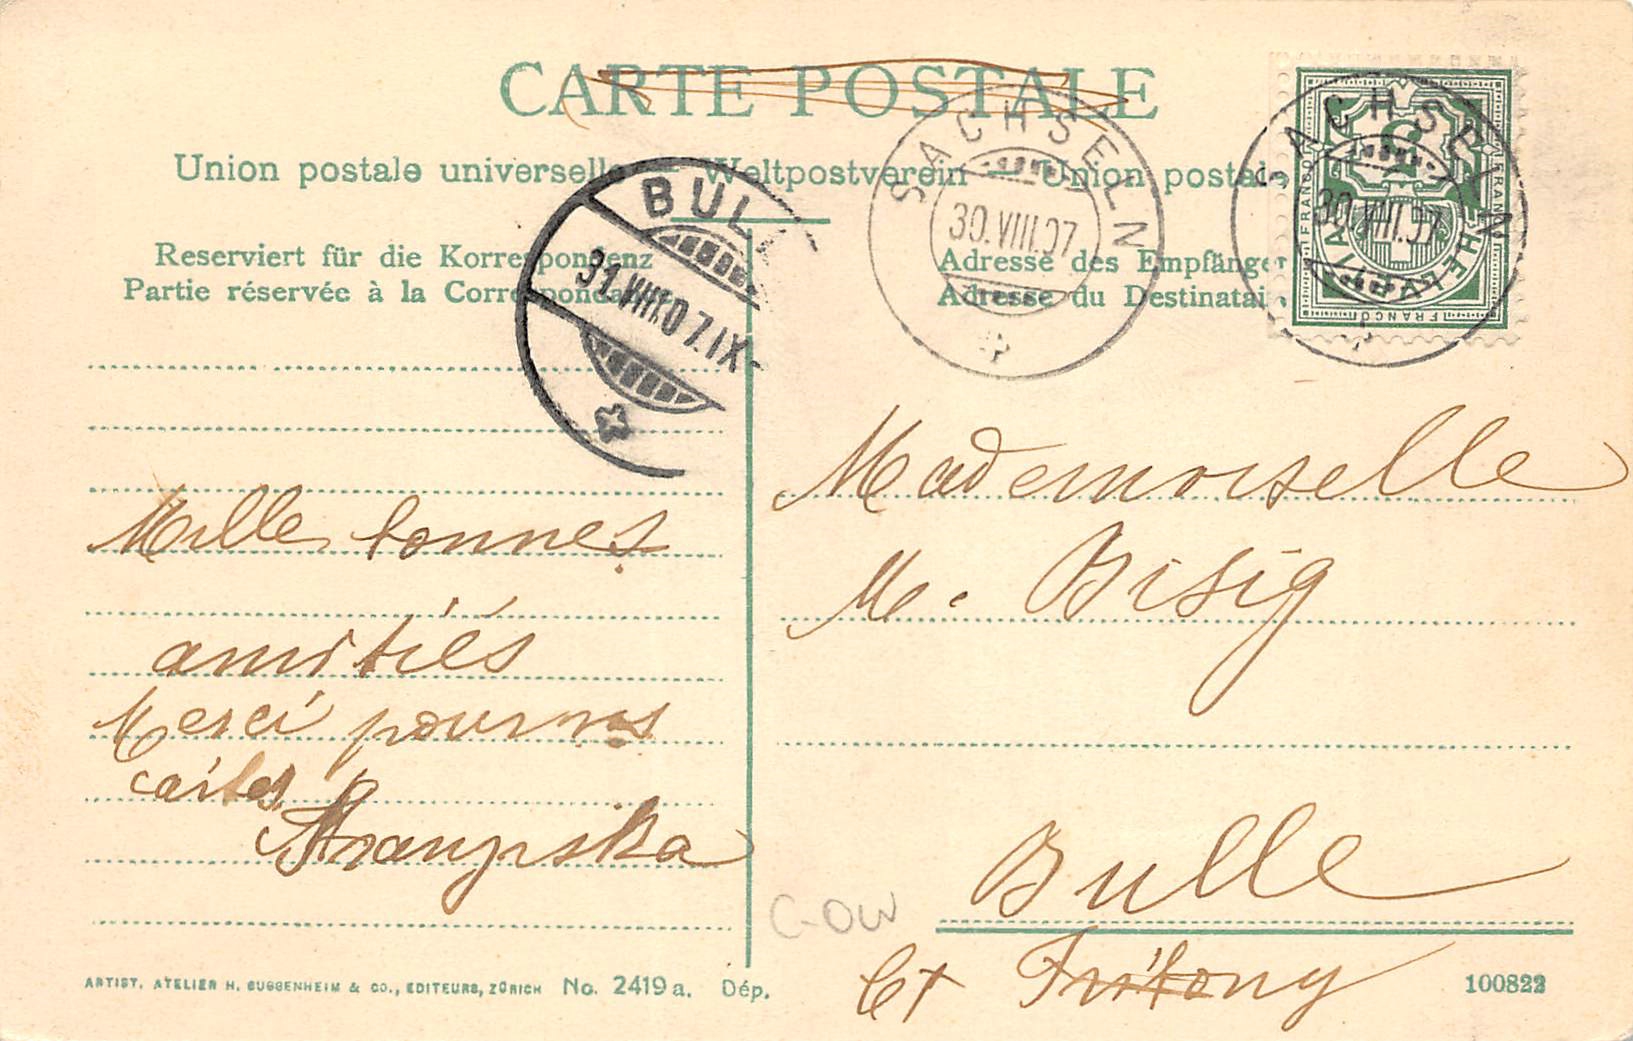 CARTE POSTALE
Union postale universelle — Weltpostverein — Union postale
BUL
31.VIII.07.IX-
SACHSELN
30.VIII.07
SACHSELN
30.VIII.07
5
FRANCO
FRANCO
FRANCO
HELVETIA
Reserviert für die Korrespondenz
Partie réservée à la Correspondance
Adresse des Empfänger
Adresse du Destinatai
Mille bonnes
amitiés
Merci pour vos
cartes
Mademoiselle
M. Bisig
Bulle
Ct Fribourg
C-OW
ARTIST. ATELIER H. GUGGENHEIM & CO., EDITEURS, ZÜRICH No. 2419a. Dép.
100822